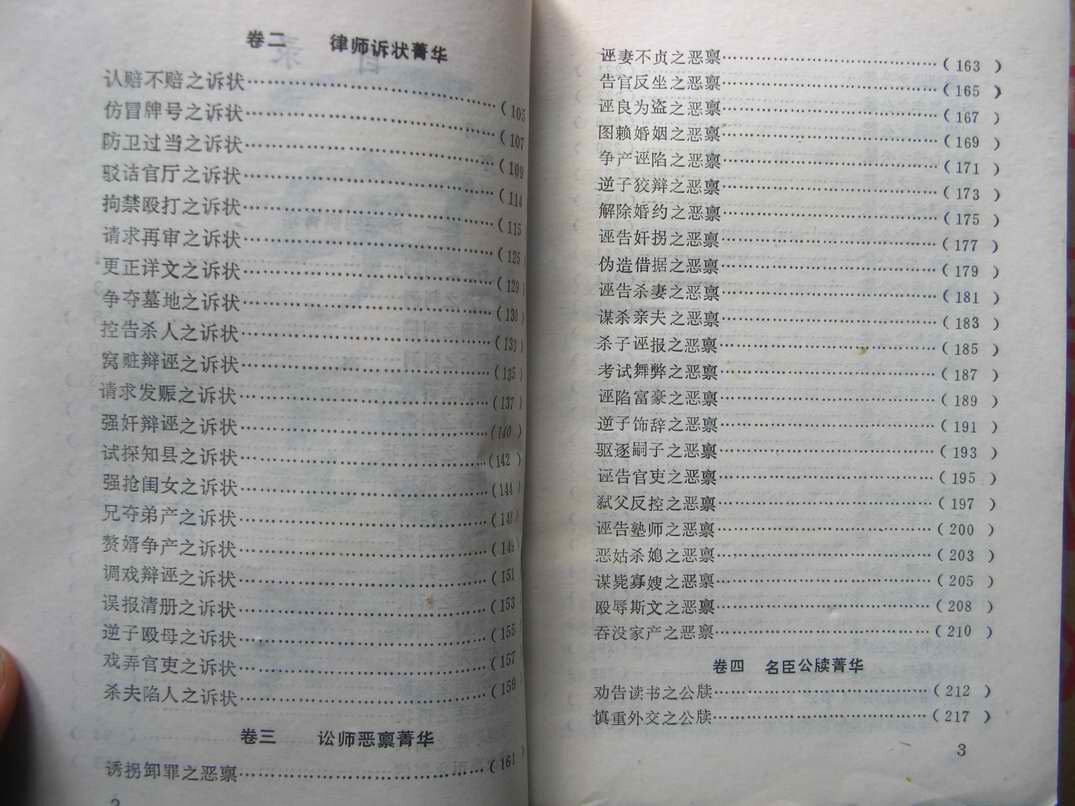 卷二 律师诉状菁华
认赔不赔之诉状……………………(105
仿冒牌号之诉状……………………(107
防卫过当之诉状……………………(109
驳诘官厅之诉状……………………(114
拘禁殴打之诉状……………………(115
请求再审之诉状……………………(125
更正详文之诉状……………………(129
争夺墓地之诉状……………………(130
控告杀人之诉状……………………(133
窝赃辩诬之诉状……………………(135
请求发赈之诉状……………………(137
强奸辩诬之诉状……………………(140)
试探知县之诉状……………………(142
强抢闺女之诉状……………………(144
兄夺弟产之诉状……………………(14
赘婿争产之诉状……………………(149
调戏辩诬之诉状……………………(151
误报清册之诉状……………………(153
逆子殴母之诉状……………………(155
戏弄官吏之诉状……………………(157
杀夫陷人之诉状……………………(159
卷三 讼师恶禀菁华
诱拐卸罪之恶禀……………………(161)
2
诬妻不贞之恶禀……………………(163)
告官反坐之恶禀……………………(165)
诬良为盗之恶禀……………………(167)
图赖婚姻之恶禀……………………(169)
争产诬陷之恶禀……………………(171)
逆子狡辩之恶禀……………………(173)
解除婚约之恶禀……………………(175)
诬告奸拐之恶禀……………………(177)
伪造借据之恶禀……………………(179)
诬告杀妻之恶禀……………………(181)
谋杀亲夫之恶禀……………………(183)
杀子诬报之恶禀……………………(185)
考试舞弊之恶禀……………………(187)
诬陷富豪之恶禀……………………(189)
逆子饰辞之恶禀……………………(191)
驱逐嗣子之恶禀……………………(193)
诬告官吏之恶禀……………………(195)
弑父反控之恶禀……………………(197)
诬告塾师之恶禀……………………(200)
恶姑杀媳之恶禀……………………(203)
谋毙寡嫂之恶禀……………………(205)
殴辱斯文之恶禀……………………(208)
吞没家产之恶禀……………………(210)
卷四 名臣公牍菁华
劝告读书之公牍……………………(212)
慎重外交之公牍……………………(217)
3